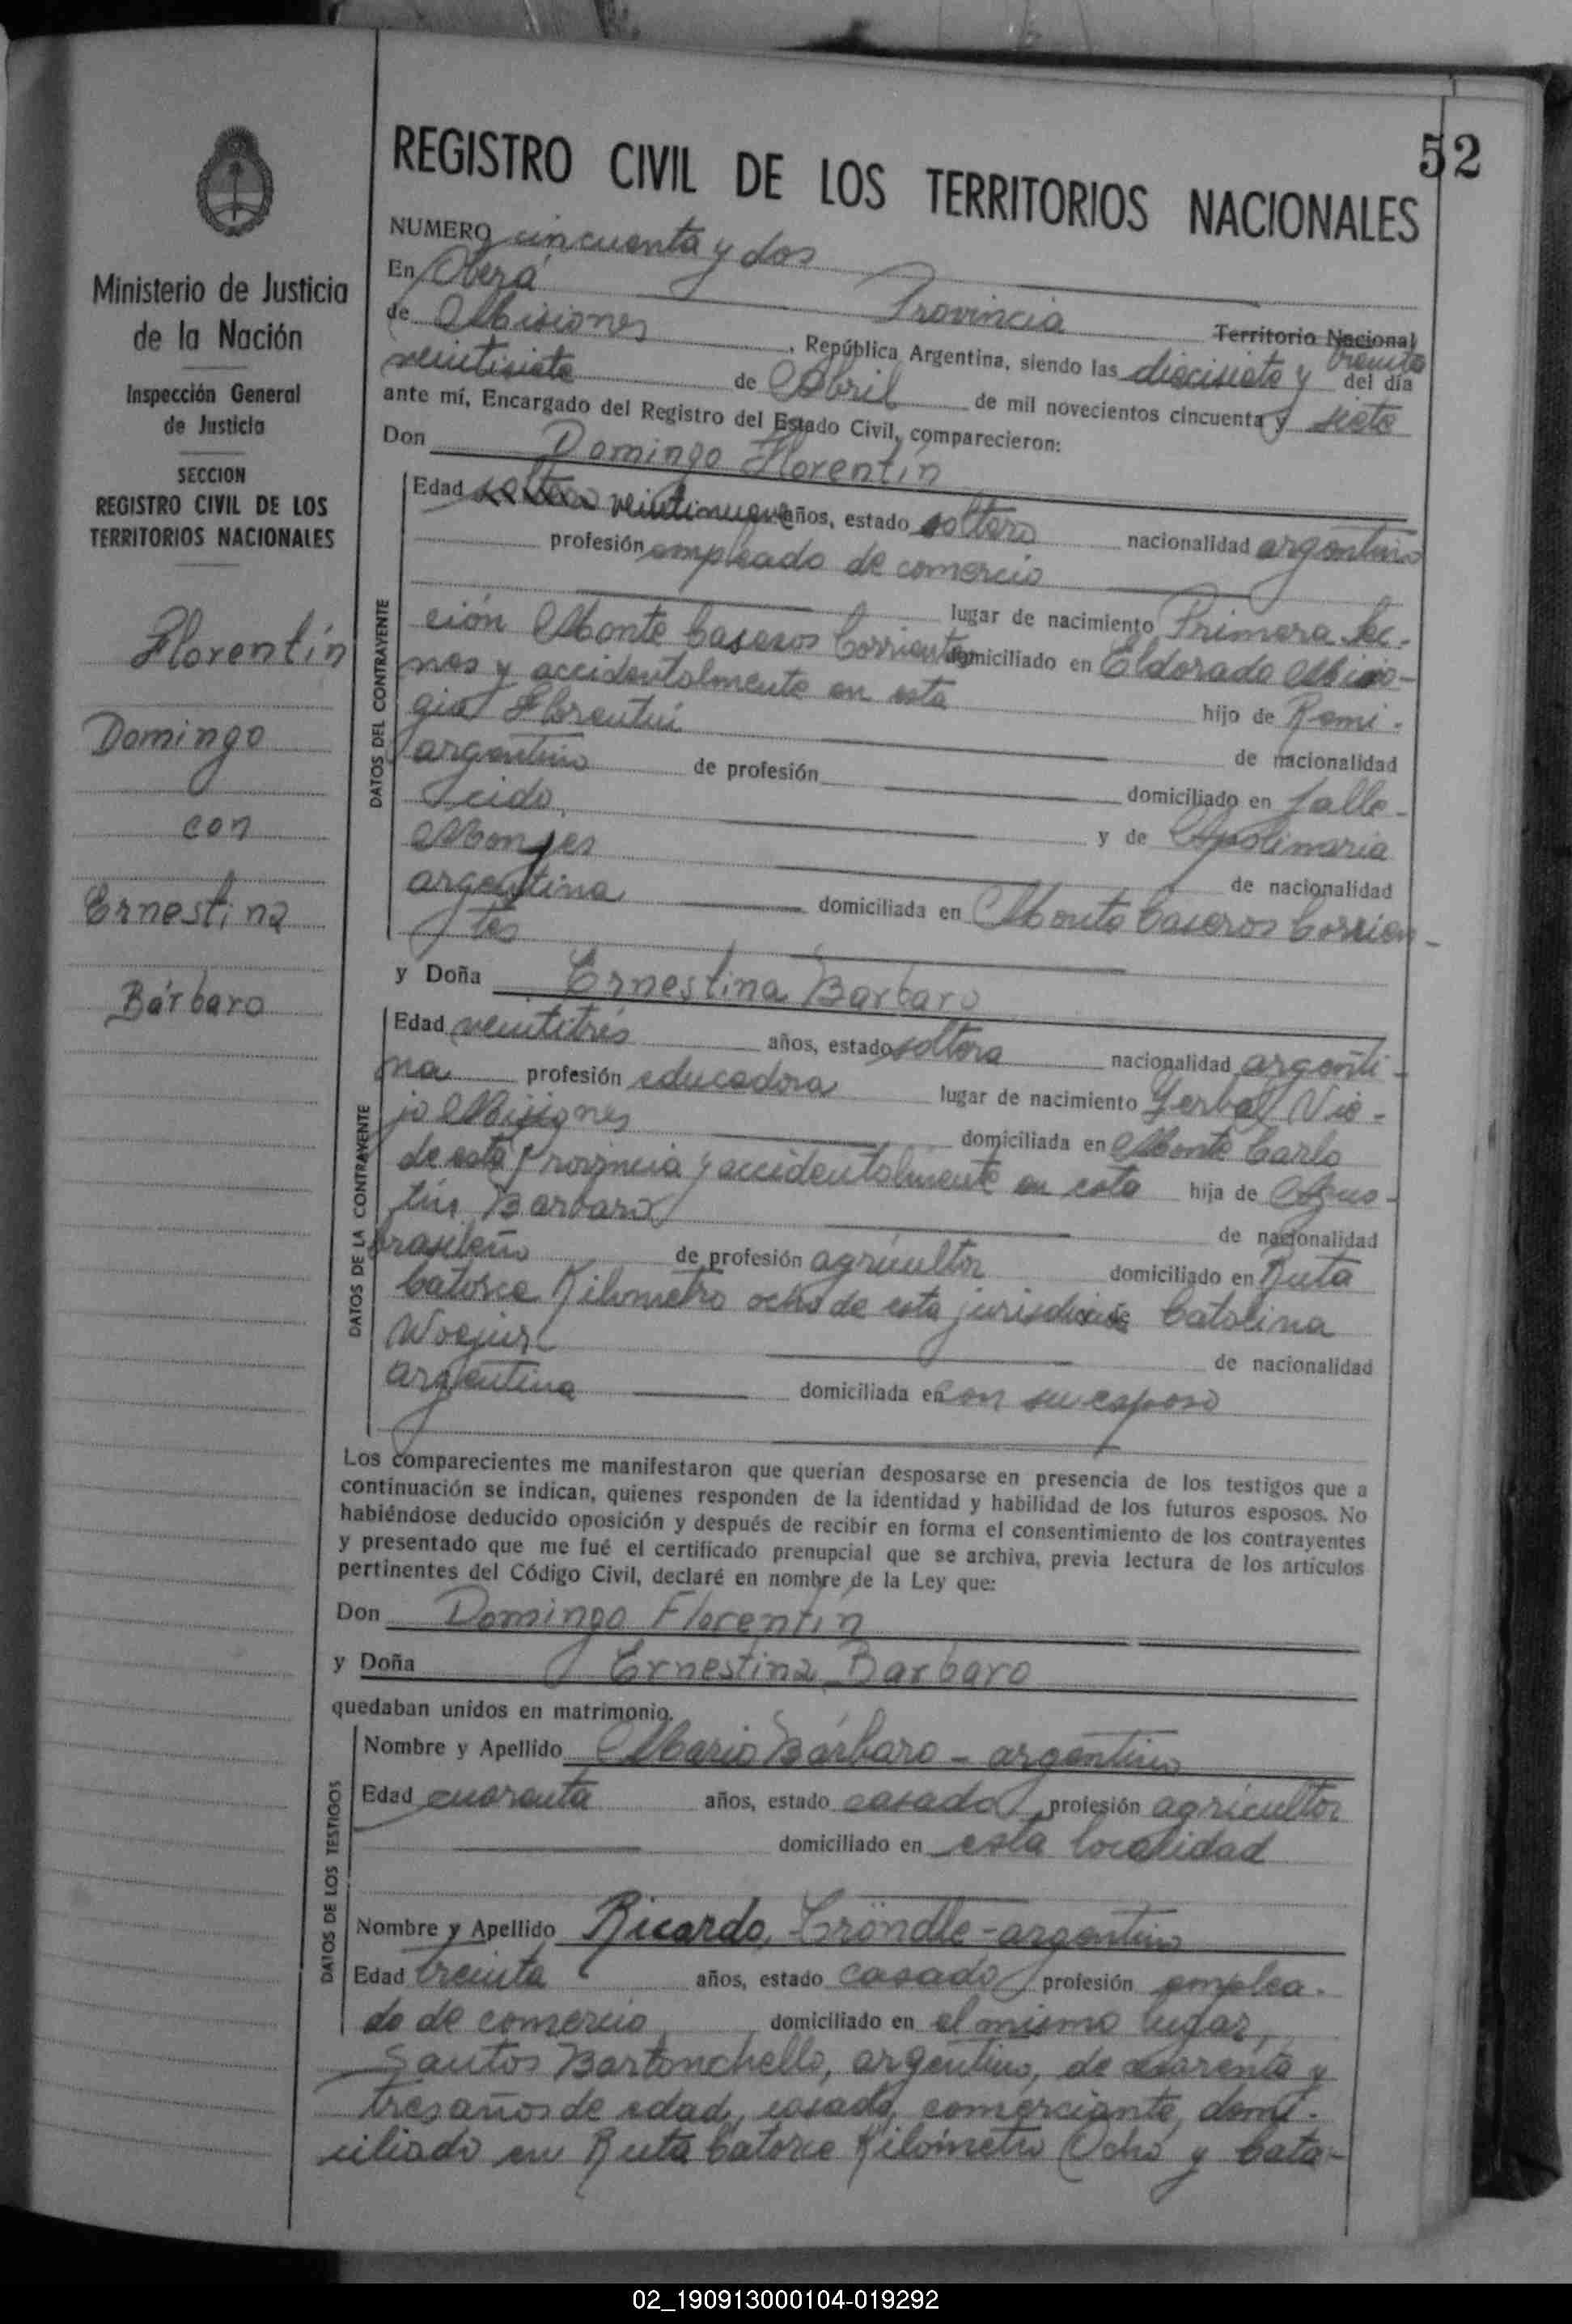 52
REGISTRO CIVIL DE LOS TERRITORIOS NACIONALES
Ministerio de Justicia
de la Nación
Inspección General
de Justicia
SECCION
REGISTRO CIVIL DE LOS
TERRITORIOS NACIONALES
Florentín
Domingo
con
Ernestina
Bárbaro
NUMERO cincuenta y dos
En Oberá Provincia Territorio Nacional
de Misiones, República Argentina, siendo las diecisiete y treinta del día
veintisiete de Abril de mil novecientos cincuenta y siete
ante mí, Encargado del Registro del Estado Civil, comparecieron:
Don Domingo Florentín
DATOS DEL CONTRAYENTE
Edad soltero veintinueve años, estado soltero nacionalidad argentino
profesión empleado de comercio
lugar de nacimiento Primera Sec-
ción Monte Caseros Corrientes domiciliado en Eldorado Misio-
nes y accidentalmente en esta hijo de Remi-
gio Florentín de nacionalidad
argentino de profesión domiciliado en falle-
cido, y de Apolinaria
Monjes de nacionalidad
argentina domiciliada en Monte Caseros Corrien-
tes
y Doña Ernestina Barbaro
DATOS DE LA CONTRAYENTE
Edad veintitrés años, estado soltera nacionalidad argenti-
na profesión educadora lugar de nacimiento Yerbal Vie-
jo Misiones domiciliada en Monte Carlo
de esta Provincia y accidentalmente en esta hija de Agus-
tín Barbaro de nacionalidad
brasileño de profesión agricultor domiciliado en Ruta
Catorce Kilometro ocho de esta jurisdicción Catalina
de nacionalidad
argentina domiciliada en con su esposo
Los comparecientes me manifestaron que querían desposarse en presencia de los testigos que a
continuación se indican, quienes responden de la identidad y habilidad de los futuros esposos. No
habiéndose deducido oposición y después de recibir en forma el consentimiento de los contrayentes
y presentado que me fué el certificado prenupcial que se archiva, previa lectura de los artículos
pertinentes del Código Civil, declaré en nombre de la Ley que:
Don Domingo Florentín
y Doña Ernestina Barbaro
quedaban unidos en matrimonio.
DATOS DE LOS TESTIGOS
Nombre y Apellido Mario Bárbaro - argentino
Edad cuarenta años, estado casado profesión agricultor
domiciliado en esta localidad
Nombre y Apellido Ricardo Gröndle - argentino
Edad treinta años, estado casado profesión emplea-
do de comercio domiciliado en el mismo lugar,
Santos Bartonchello, argentino, de cuarenta y
tres años de edad, casado, comerciante, domi-
ciliado en Ruta Catorce Kilómetro Ocho y Cata-
02_190913000104-019292